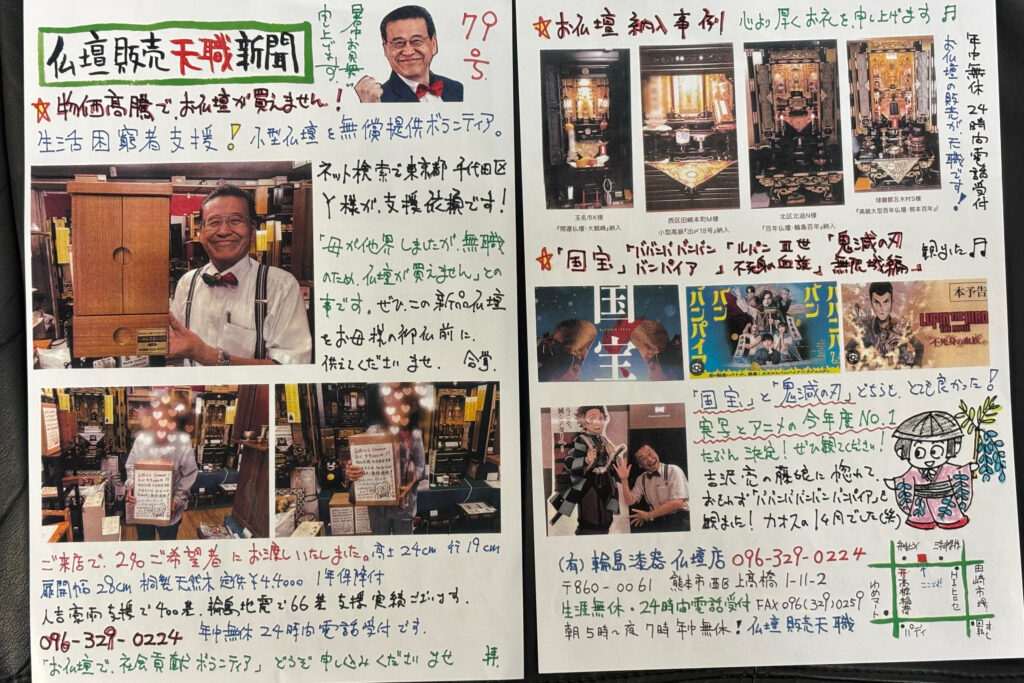 仏壇販売天職新聞
暑中お見舞い
申し上げます
79号
☆物価高騰で、お仏壇が買えません!
生活困窮者支援!小型仏壇を無償提供ボランティア。
ネット検索で東京都千代田区
Y様が、支援依頼です!
「母が他界しましたが、無職
のため、仏壇が買えません」との
事です。ぜひ、この新品仏壇
をお母様の御仏前に、
供えてくださいませ 合掌
ご来店で、2名ご希望者にお渡しいたしました。高さ24cm 行19cm
扉開幅28cm 桐製天然木 定価¥44000 1年保障付
人吉豪雨支援で400基、輪島地震で66基 支援実績ございます
096-329-0224 年中無休24時間電話受付です。
「お仏壇で、社会貢献ボランティア」どうぞ申し込みくださいませ 拝
☆お仏壇納入事例 心より厚くお礼を、申し上げます♬
年中無休 24時間電話受付
お仏壇の販売が、天職です!
玉名市K様
『開運仏壇・大鶴崎』納入
西区田崎本町M様
小型高級『出〆18号』納入
北区北迫N様
『百年仏壇・輪島百年』納入
球磨郡五木村S様
『高級大型百年仏壇・熊本百年』!
☆「国宝」「ババンババンバンバンパイア」「ルパン三世 不死身の血族」「鬼滅の刃 無限城編」観ました♬
国宝
KOKUHO
バンバンパイア
本予告
LUPIN THE IIIRD
不死身の血族
「国宝」と「鬼滅の刃」どちらも、とても良かった!
実写とアニメの今年度NO.1
たぶん決定!ぜひ観てください!
吉沢亮の藤娘に惚れて、
おもわず「ババンババンバンバンパイア」も
観ました!カオスの1ヶ月でした(笑)
(有)輪島漆器仏壇店 096-329-0224
〒860-0061 熊本市西区上高橋1-11-2
生涯無休・24時間電話受付 FAX 096(329)0259
朝5時~夜7時 年中無休!仏壇販売天職
ここです!
田崎市場